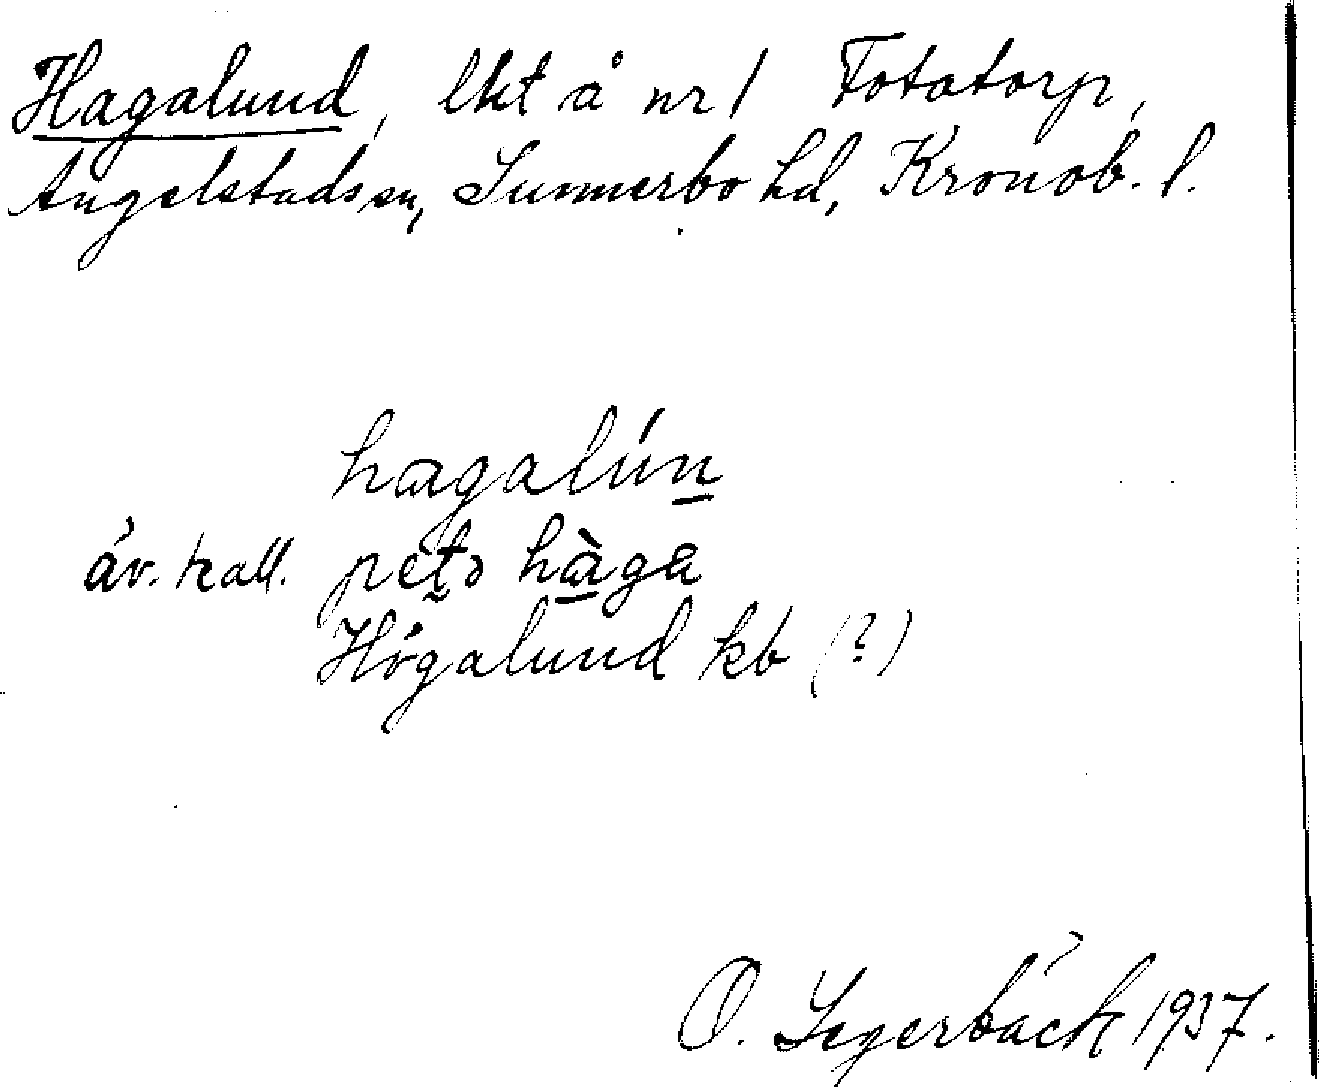 Hagalund, lht å nr 1 Totatorp,
Angelstads sn, Sunnerbo hd, Kronob. l.
hagalún
äv. kall. petə hàga
Högalund kb (?)
O. Segerbäck 1937.